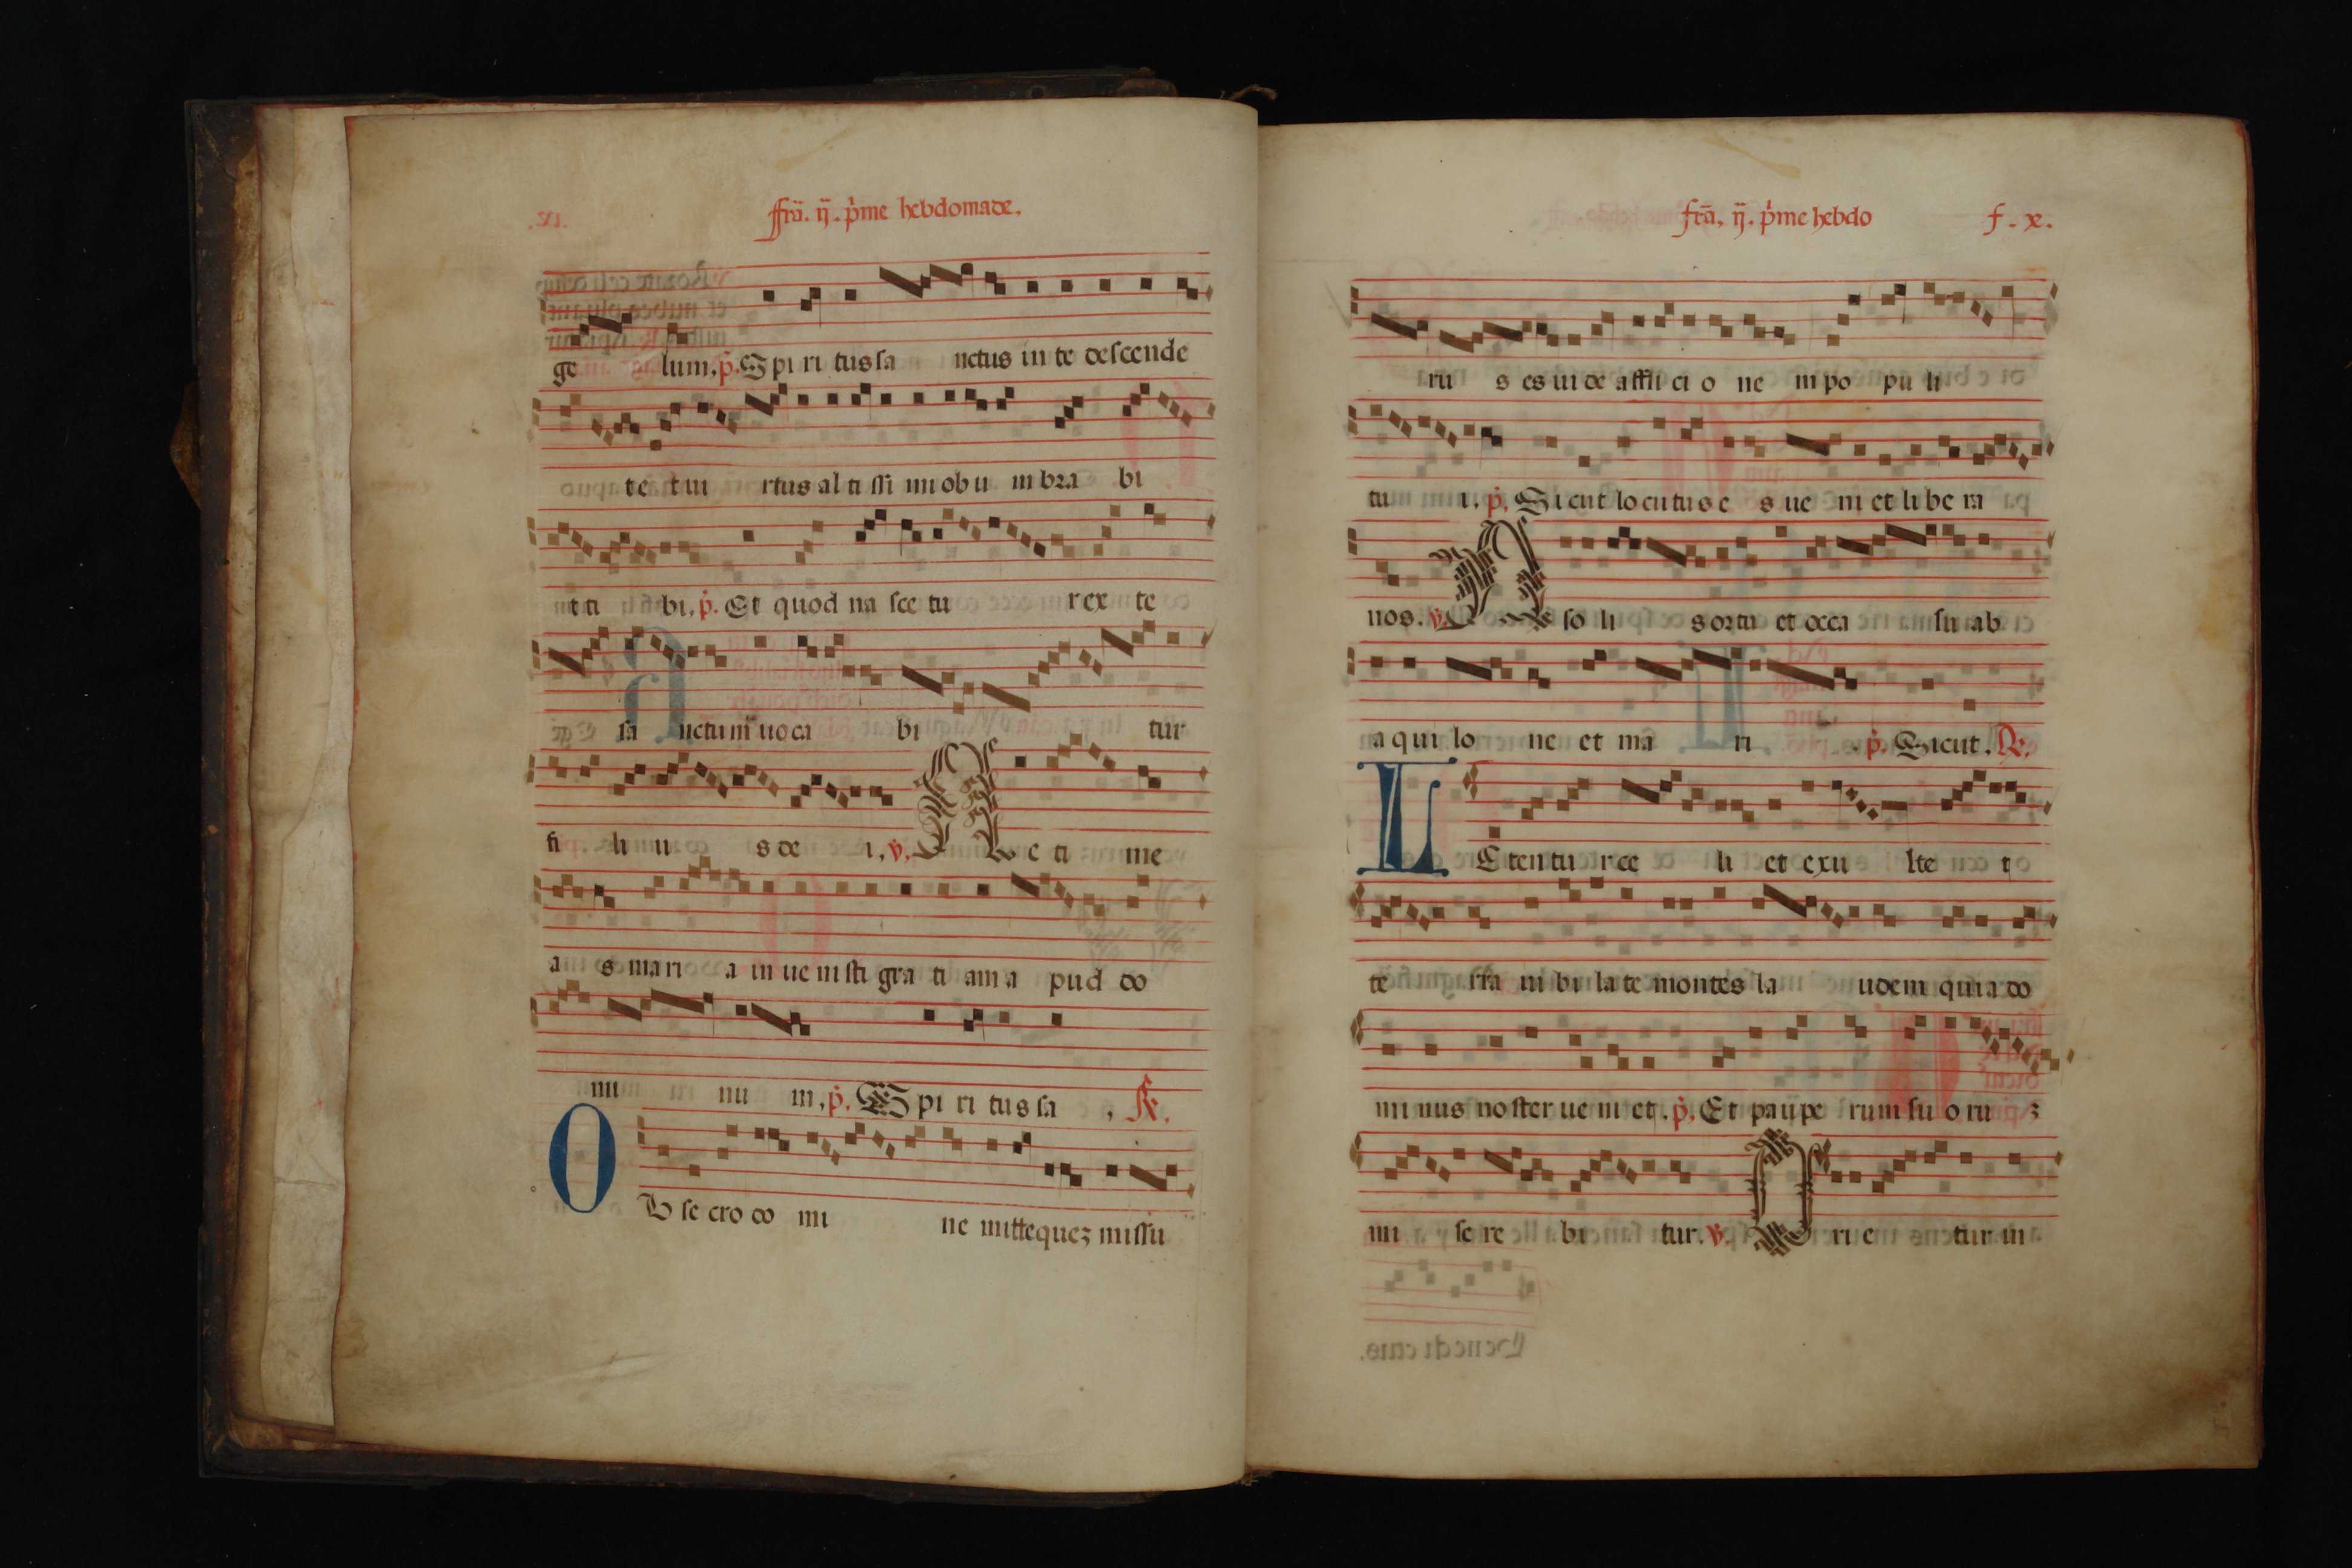 fra. ij. p̄me hebdomade.
ge lum. p̄. Spi ri tus sa nctus in te descende
te t ui rtus al ti ssi mi ob u m bra bi
t ti bi. p̄. Et quod na sce tu r ex te
sa nctum uo ca bi tur
fi li u s de i. v. A ue ti me
a s mari a in ue ni sti gra ti am a pud do
mi nu m. p̄. Spi ri tus sa . R.
O b se cro do mi ne mitte quez missu
fra. ij. p̄me hebdo f. x.
ru s es ui de affli cti o ne m po pu li
tu i. p̄. Sicut locutus e s ue ni et li be ra
nos. v. A so li s ortu et occa su ab
a qui lo ne et ma ri . p̄. Sicut. R.
L Etentu r ce li et exu lte t
te rra iu bi la te montes la udem quia do
mi nus noster ue ni et. p̄. Et paupe rum su o ru z
mi se re bi tur. v. O ri e tur in